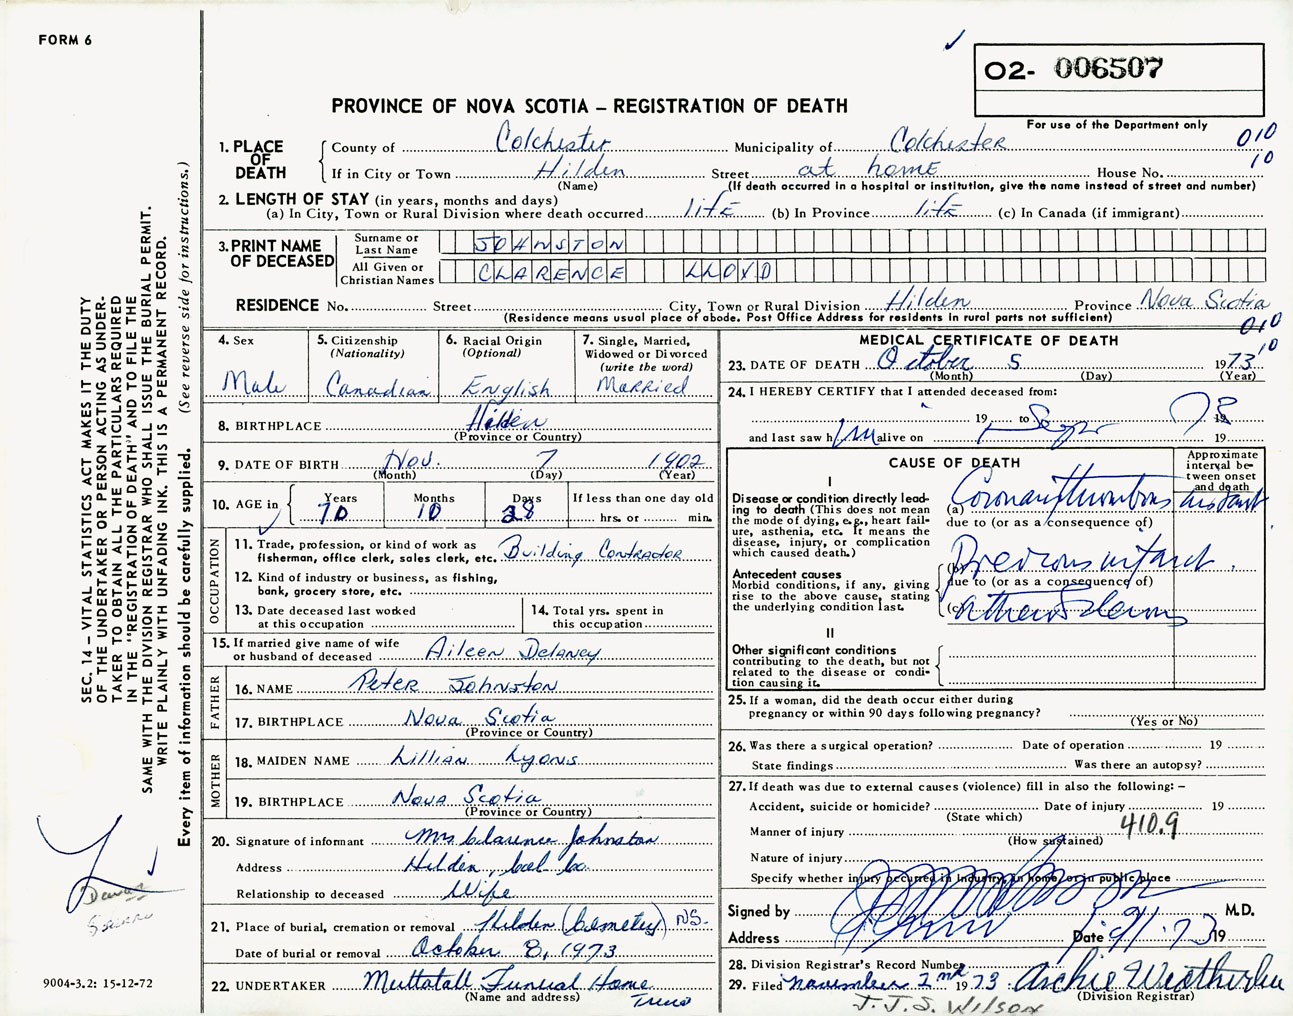 FORM 6
O2- 006507
PROVINCE OF NOVA SCOTIA – REGISTRATION OF DEATH
For use of the Department only
1. PLACE OF DEATH
County of Colchester Municipality of Colchester 010
If in City or Town Hilden Street at home House No. 10
(Name) (If death occurred in a hospital or institution, give the name instead of street and number)
2. LENGTH OF STAY (in years, months and days)
(a) In City, Town or Rural Division where death occurred life (b) In Province life (c) In Canada (if immigrant)
3. PRINT NAME OF DECEASED
Surname or Last Name JOHNSTON
All Given or Christian Names CLARENCE LLOYD
RESIDENCE No. Street City, Town or Rural Division Hilden Province Nova Scotia
(Residence means usual place of abode. Post Office Address for residents in rural parts not sufficient)
010
10
4. Sex Male
5. Citizenship (Nationality) Canadian
6. Racial Origin (Optional) English
7. Single, Married, Widowed or Divorced (write the word) Married
8. BIRTHPLACE Hilden
(Province or Country)
9. DATE OF BIRTH Nov. 7 1902
(Month) (Day) (Year)
10. AGE in Years 70 Months 10 Days 28 If less than one day old hrs. or min.
OCCUPATION
11. Trade, profession, or kind of work as fisherman, office clerk, sales clerk, etc. Building Contractor
12. Kind of industry or business, as fishing, bank, grocery store, etc.
13. Date deceased last worked at this occupation
14. Total yrs. spent in this occupation
15. If married give name of wife or husband of deceased Aileen Delaney
FATHER
16. NAME Peter Johnston
17. BIRTHPLACE Nova Scotia
(Province or Country)
MOTHER
18. MAIDEN NAME Lillian Lyons
19. BIRTHPLACE Nova Scotia
(Province or Country)
20. Signature of informant Mrs Clarence Johnston
Address Hilden, Col. Co.
Relationship to deceased Wife
21. Place of burial, cremation or removal Hilden (Cemetery) NS.
Date of burial or removal October 8, 1973
22. UNDERTAKER Muttatall Funual Home
(Name and address) Truro
MEDICAL CERTIFICATE OF DEATH
23. DATE OF DEATH October 5 1973
(Month) (Day) (Year)
24. I HEREBY CERTIFY that I attended deceased from:
19 to Sept 73 19
and last saw him alive on 19
CAUSE OF DEATH
Approximate interval between onset and death
I
Disease or condition directly leading to death (This does not mean the mode of dying, e.g., heart failure, asthenia, etc. It means the disease, injury, or complication which caused death.)
(a) Coronary thrombosis instant
due to (or as a consequence of)
Antecedent causes
Morbid conditions, if any, giving rise to the above cause, stating the underlying condition last.
(b) Previous infarct.
due to (or as a consequence of)
(c)
II
Other significant conditions contributing to the death, but not related to the disease or condition causing it.
25. If a woman, did the death occur either during pregnancy or within 90 days following pregnancy?
(Yes or No)
26. Was there a surgical operation? Date of operation 19
State findings Was there an autopsy?
27. If death was due to external causes (violence) fill in also the following: –
Accident, suicide or homicide? Date of injury 19
(State which)
Manner of injury 410.9
(How sustained)
Nature of injury
Specify whether injury occurred in industry, in home, or in public place
Signed by M.D.
Address Date 73 19
28. Division Registrar's Record Number
29. Filed November 2nd 1973 Archie Weatherbee
(Division Registrar)
J. J. S. Wilson
SEC. 14 – VITAL STATISTICS ACT MAKES IT THE DUTY
OF THE UNDERTAKER OR PERSON ACTING AS UNDERTAKER
TO OBTAIN ALL THE PARTICULARS REQUIRED
IN THE "REGISTRATION OF DEATH" AND TO FILE THE
SAME WITH THE DIVISION REGISTRAR WHO SHALL ISSUE THE BURIAL PERMIT.
WRITE PLAINLY WITH UNFADING INK. THIS IS A PERMANENT RECORD.
Every item of information should be carefully supplied. (See reverse side for instructions.)
9004-3.2: 15-12-72